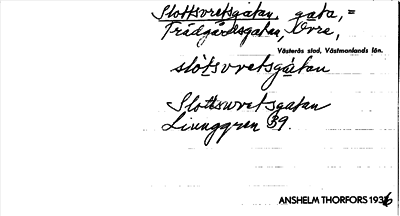 Slottsvretsgatan, gata, =
Trädgårdsgatan, Övre,
Västerås stad, Västmanlands län.
slòtsvretsgàtan
Slottsvretsgatan
Ljunggren 39.
ANSHELM THORFORS 1936